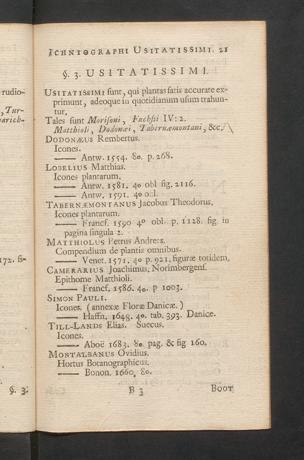 rudio-
, Tur-
varich-
172. fi-
§. 3.
ICHNTOGRAPHI USITATISSIMI. 21
§. 3. USITATISSIMI.
USITATISSIMI sunt, qui plantas satis accurate ex-
primunt, adeoque in quotidianum usum trahun-
tur.
Tales sunt Morisoni, Fuchsii IV: 2.
Matthioli, Dodonæi, Tabernæmontani, &c.
DODONÆUS Rembertus.
Icones.
—— Antw. 1554. 8o. p. 268.
LOBELIUS Matthias.
Icones plantarum.
—— Antw. 1581. 4o obl fig. 2116.
—— Antw. 1591. 4o obl.
TABERNÆMONTANUS Jacobus Theodorus.
Icones plantarum.
—— Francf. 1590 4o obl. p. 1128. fig. in
pagina singula 2.
MATTHIOLUS Petrus Andreas.
Compendium de plantis omnibus.
—— Venet. 1571. 4o p. 921, figuræ totidem.
CAMERARIUS Joachimus, Norimbergens.
Epithome Matthioli.
—— Francf. 1586. 4o. p 1003.
SIMON PAULI.
Icones. (annexæ Floræ Danicæ.)
—— Haffn. 1648. 4o. tab. 393. Danice.
TILL-LANDS Elias. Suecus.
Icones.
—— Aboë 1683. 8o. pag. & fig 160.
MONTALBANUS Ovidius.
Hortus Botanographicus.
—— Bonon. 1660. 8o.
B 3 BOOT